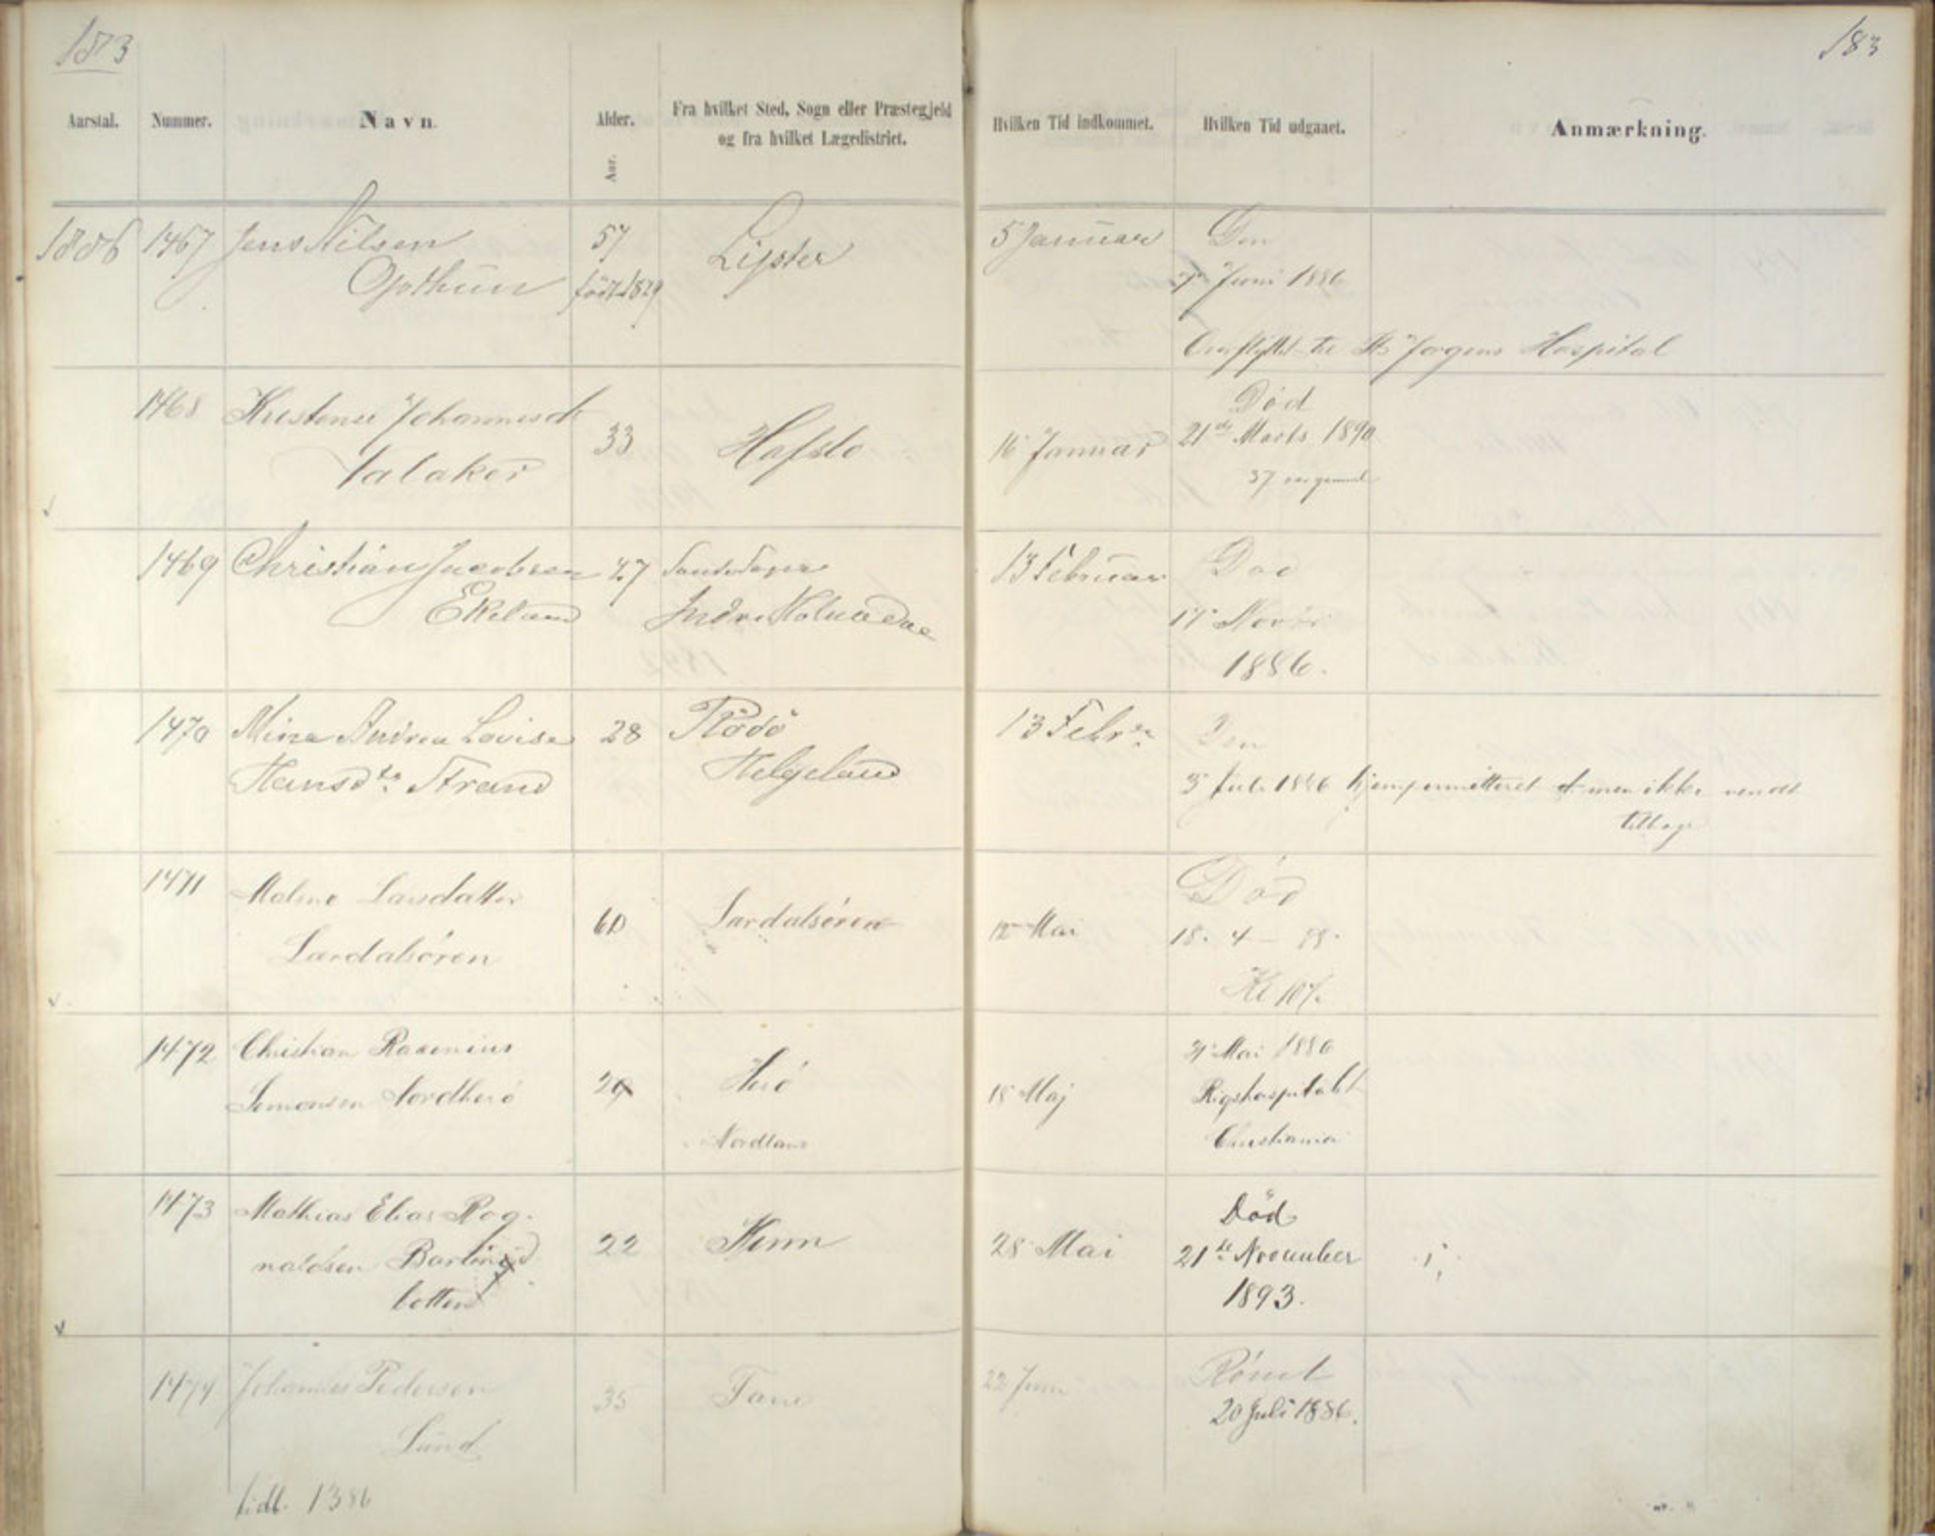 183
183
Aarstal. Nummer. Navn. Alder. Aar. Fra hvilket Sted, Sogn eller Præstegjeld
og fra hvilket Lægedistrict.
Hvilken Tid indkommet. Hvilken Tid udgaaet. Anmærkning.
1886 1467 Jens Nilsen 57 Lyster 5 Januar Den
Opthun født 1829 7 Juni 1886
Overflyttet til St Jørgens Hospital
1468 Johannesdtr 33 Hafslo 16 Januar Død
Talaker 21de Marts 1890
37 aar gammel
1469 Christian Jacobsen 27 13 Februar Død
Ekeland Indre Holmedal 17 Novbr
1886.
1470 Mine Andrea Lovise 28 Rödö 13 Febr. Den
Hansdtr. Strand Helgeland 3 Juli 1886 hjempermitteret men ikke vendt
tilbage
1471 Malene Larsdatter 60 Lærdalsören 12 Mai Död
Lærdalsören 18. 4 - 88.
Kl
1472 Christian Rasmus 29 Herö 18 Maj 31 Mai 1886
Simonsen Nordherö Nordland Rigshospitalet
Christiania
1473 Mathias Elias Rog- 22 Kinn 28 Mai Död
naldsen 21de November
botten 1893.
1474 Johannes Pedersen 35 Fane 22 Juni Römt
Lund 20 Juli 1886.
tidl. 1386